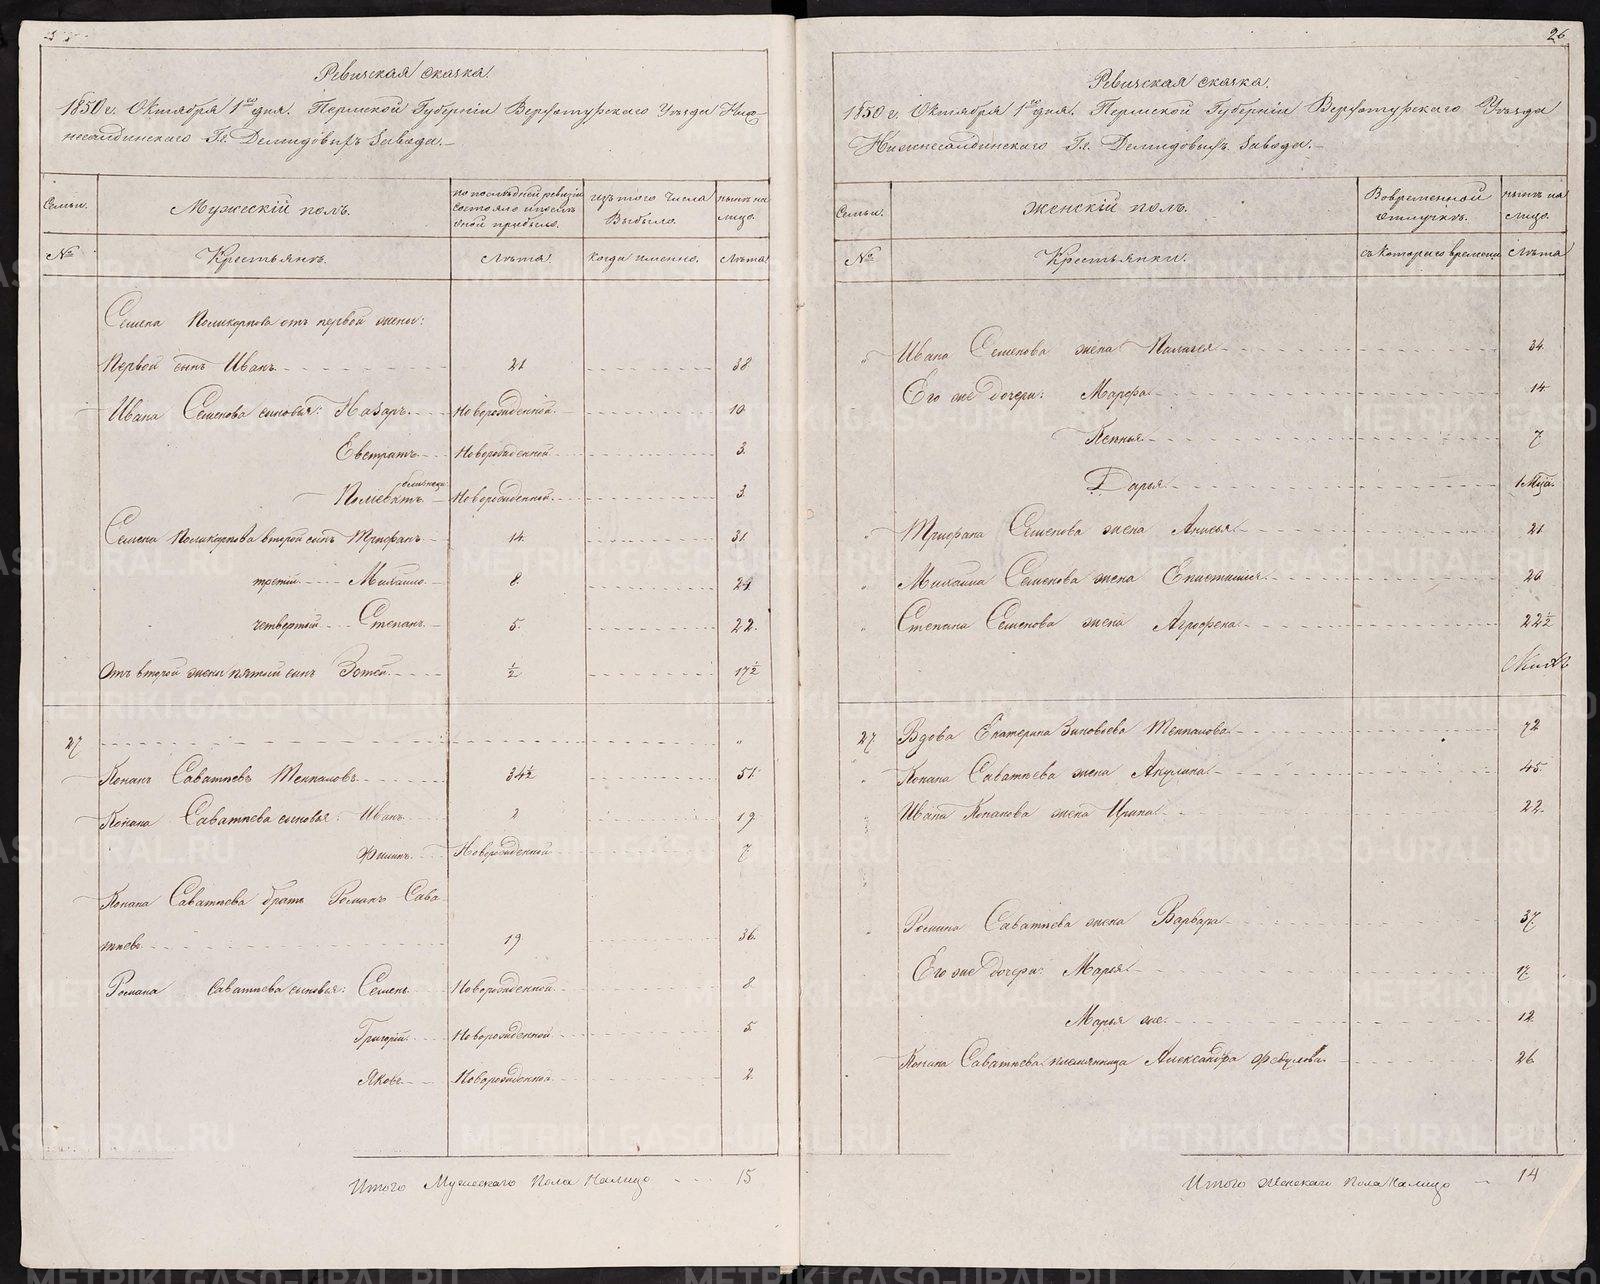 Ревижская сказка.
1850 г. Октября 1го дня. Пермской Губерніи Верхотурскаго Уезда Ниж-
несалдинскаго Гг. Демидовыхъ завода.
Семьи.
Мужескій полъ.
по последней ревизіи состояло и после оной прибыло.
изъ того числа Выбыло.
ныне на лицо.
№
Крестьянъ.
Лета.
Когда именно.
Лета
Семена Поликарпова отъ первой жены:
Первой сынъ Иванъ 21 38
Ивана Семенова сыновья: Назаръ Новорожденной 10
Евстратъ Новорожденной 3
близнецы
Новорожденной 3
Семена Поликарпова второй сынъ Трифанъ 14 31
третій Михаило 8
четвертый Степанъ 5. 22.
Отъ второй жены пятый сынъ Зотей ½ 17½
27
Конанъ Саватиевъ 34½ 51
Конана Саватиева сыновья: Иванъ 2 19
Филипъ Новорожденной 7
Конана Саватиева братъ Романъ Сава
тиевъ 19 36
Романа Саватиева сыновья: Семенъ Новорожденной 8
Григорій Новорожденной 5
Яковъ Новорожденной 2
Итого Мужескаго Пола Налицо 15
26
Ревижская сказка.
1850 г. Октября 1го дня. Пермской Губерніи Верхотурскаго Уезда
Нижнесалдинскаго Гг. Демидовыхъ завода.
Семьи.
Женскій полъ.
Во временной отлучкѣ.
ныне на лицо.
№
Крестьянки.
съ котораго времени
Лета
Ивана Семенова жена Палагея 34
Его же дочери: Марфа 14
Ксенья 7
Дарья 1 Мца.
Трифана Семенова жена Анисья 21
Михаила Семенова жена Епистимия 20
Степана Семенова жена Агрофена 22½
27 Вдова Екатерина Зиновьева 72
Конана Саватиева жена Акулина 45
Ивана Конанова жена Ирина 22
Романа Саватиева жена Варвара 37
Его же дочери: Марья 17
Марья же 12
Конана Саватиева племянница Александра 26
Итого Женскаго Пола Налицо 14
METRIKI.GASO-URAL.RU